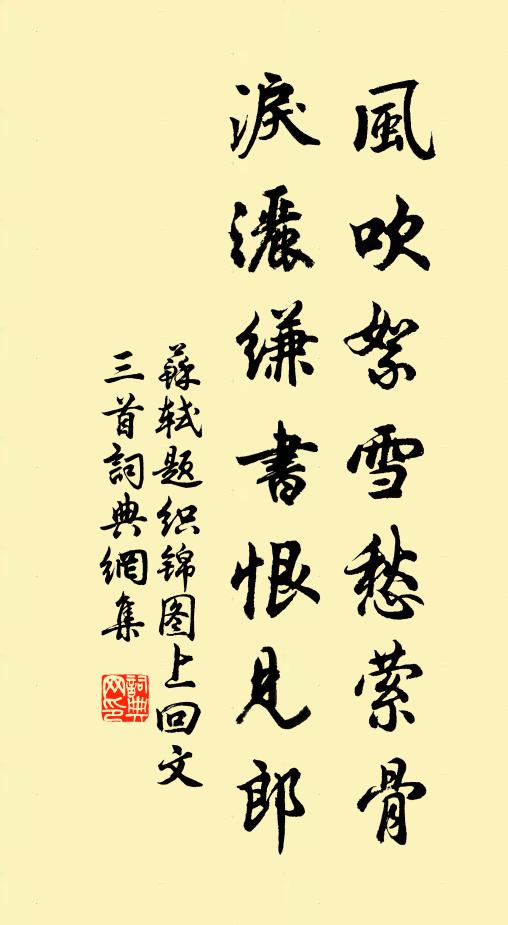 風吹絮雪愁縈骨
淚灑縑書恨見郎
蘇軾题织锦图上回文
三首詞典網集
詞典网印